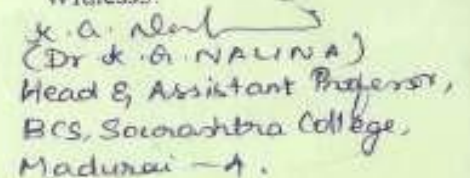 Witness:
(Dr K.G. NALINA)
Head & Assistant Professor,
BCS, Sourashtra College,
Madurai - 4.